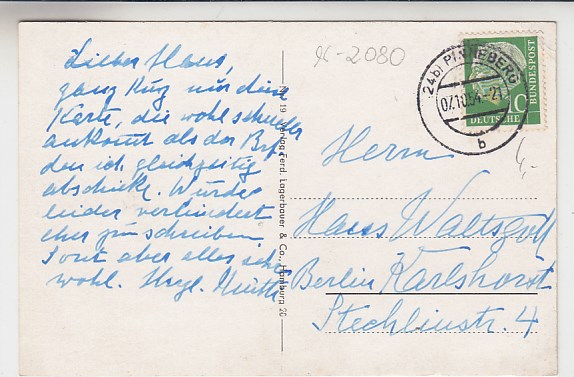 Lieber Hans,
ganz kurz nur diese
Karte, die wohl schneller
ankommt als der Brf.
den ich gleichzeitig
abschicke. Wurde
leider verhindert
eher zu schreiben.
Sonst aber alles sehr
wohl. Herzl.
19 Verlag Ferd. Lagerbauer & Co., Hamburg 20
K-2080
(24b) PINNEBERG
07.10.54.-21
b
10
DEUTSCHE
BUNDESPOST
4,-
Herrn
Hans
Berlin Karlshorst
Stechlinstr. 4